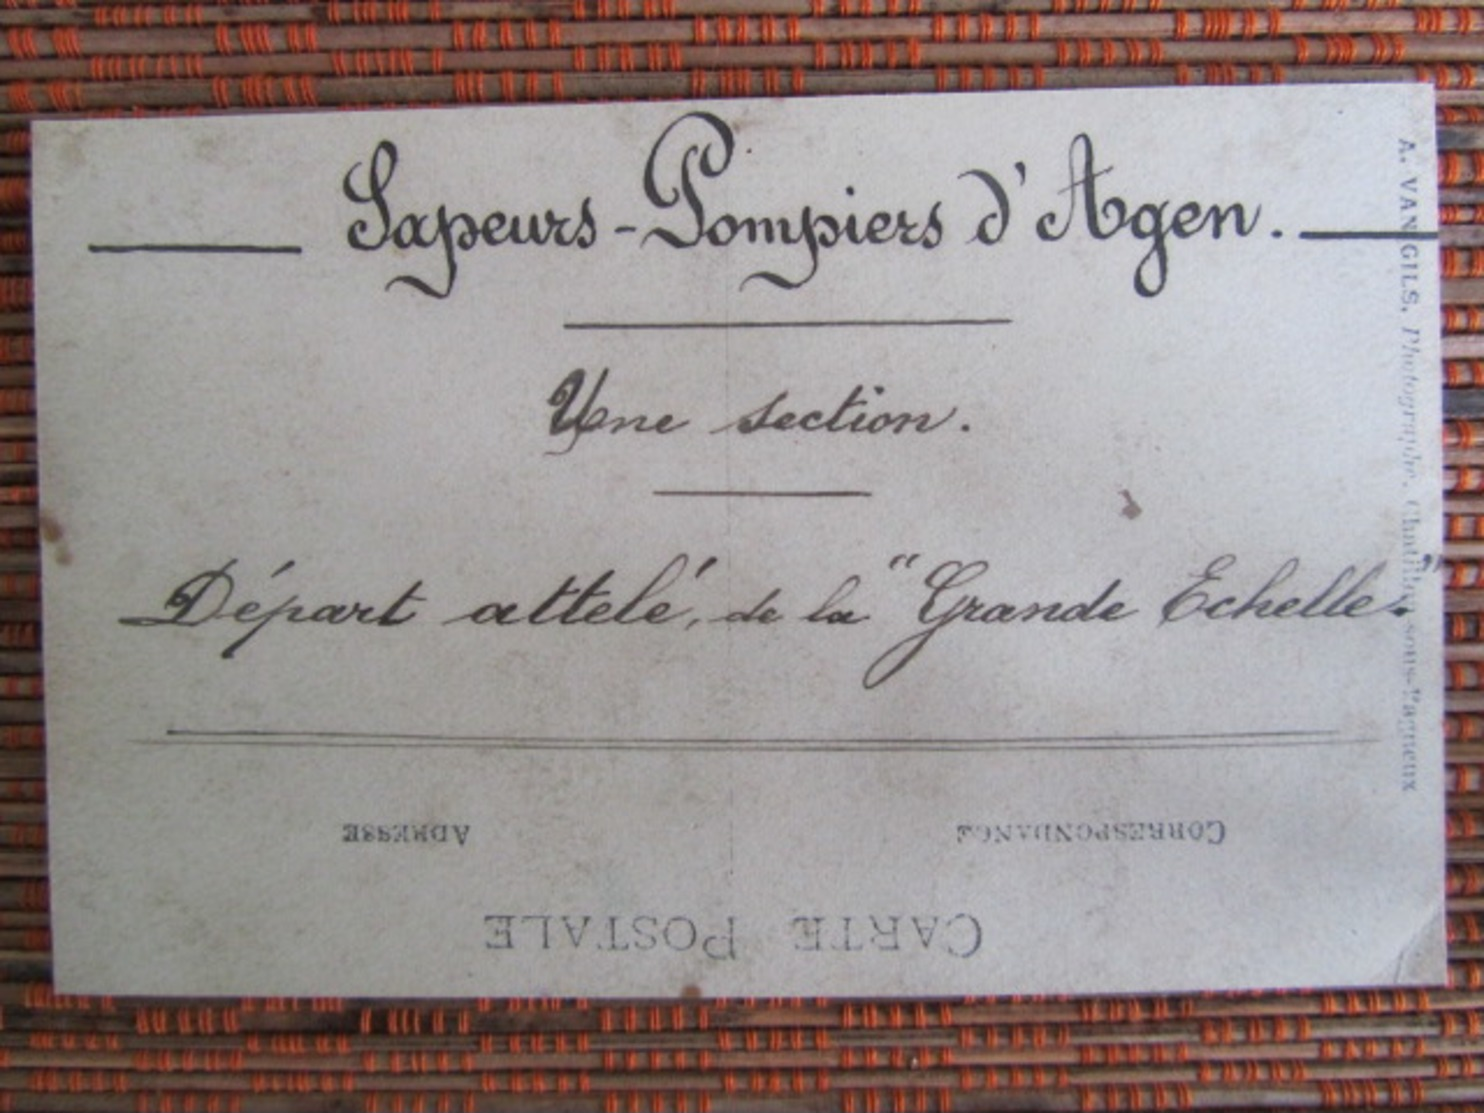 Sapeurs-Pompiers d'Agen.
Une section.
Départ attelé, de la "Grande Echelle".
A. VAN GILS, Photographe, Chatillon-sous-Bagneux
CORRESPONDANCE
ADRESSE
CARTE POSTALE